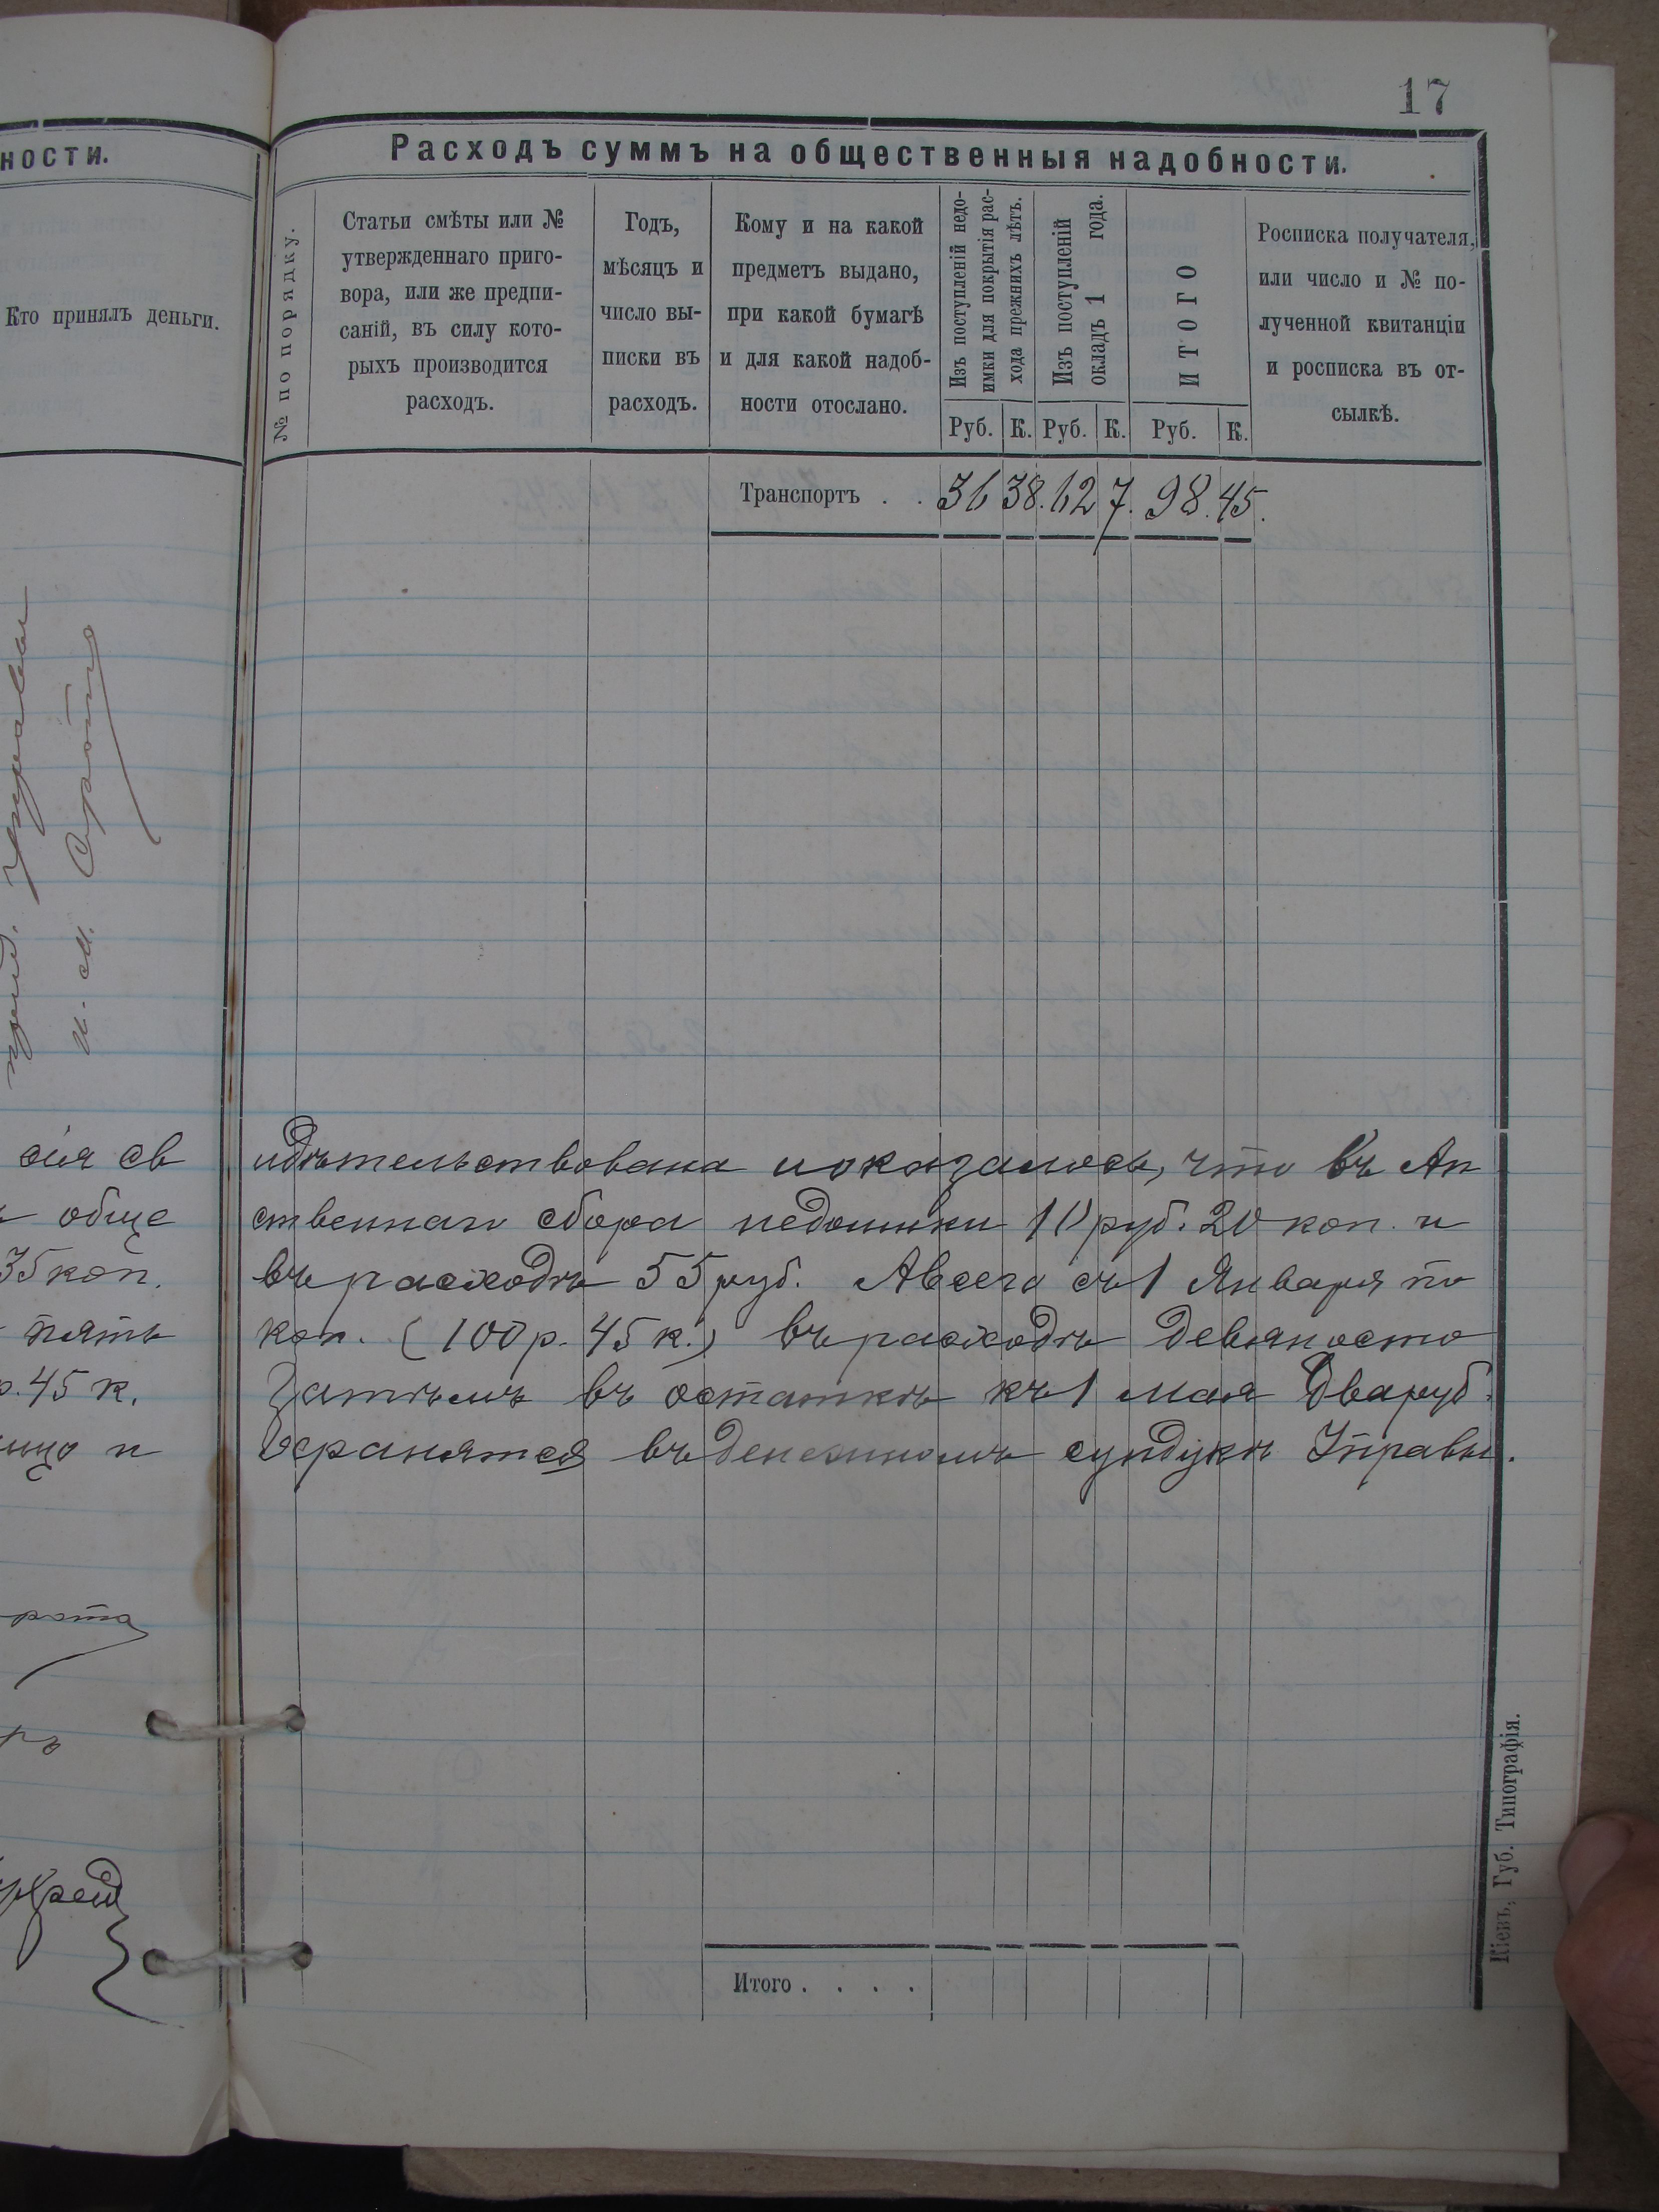 17
ности.
Кто принялъ деньги.
сія св
обще
35 коп.
пять
р. 45 к.
и
Расходъ суммъ на общественныя надобности.
№ по порядку.
Статьи смѣты или №
утвержденнаго приго-
вора, или же предпи-
саній, въ силу кото-
рыхъ производится
расходъ.
Годъ,
мѣсяцъ и
число вы-
писки въ
расходъ.
Кому и на какой
предметъ выдано,
при какой бумагѣ
и для какой надоб-
ности отослано.
Изъ поступленій недо-
имки для покрытія рас-
хода прежнихъ лѣтъ.
Изъ поступленій
окладъ 1 года.
ИТОГО
Росписка получателя,
или число и № по-
лученной квитанціи
и росписка въ от-
сылкѣ.
Руб. К. Руб. К. Руб. К.
Транспортъ . . 36 38. 62 7. 98. 45.
идѣтельствована и оказалось, что въ Ап
ственнаго сбора недоимки 10 руб. 20 коп. и
въ расходѣ 55 руб. А всего съ 1 Января по
коп. (100 р. 45 к.) въ расходѣ девяносто
Затѣмъ въ остаткѣ къ 1 мая два руб.
хранятся въ денежномъ сундукѣ Управы.
Итого . . . .
Кіевъ, Губ. Типографія.